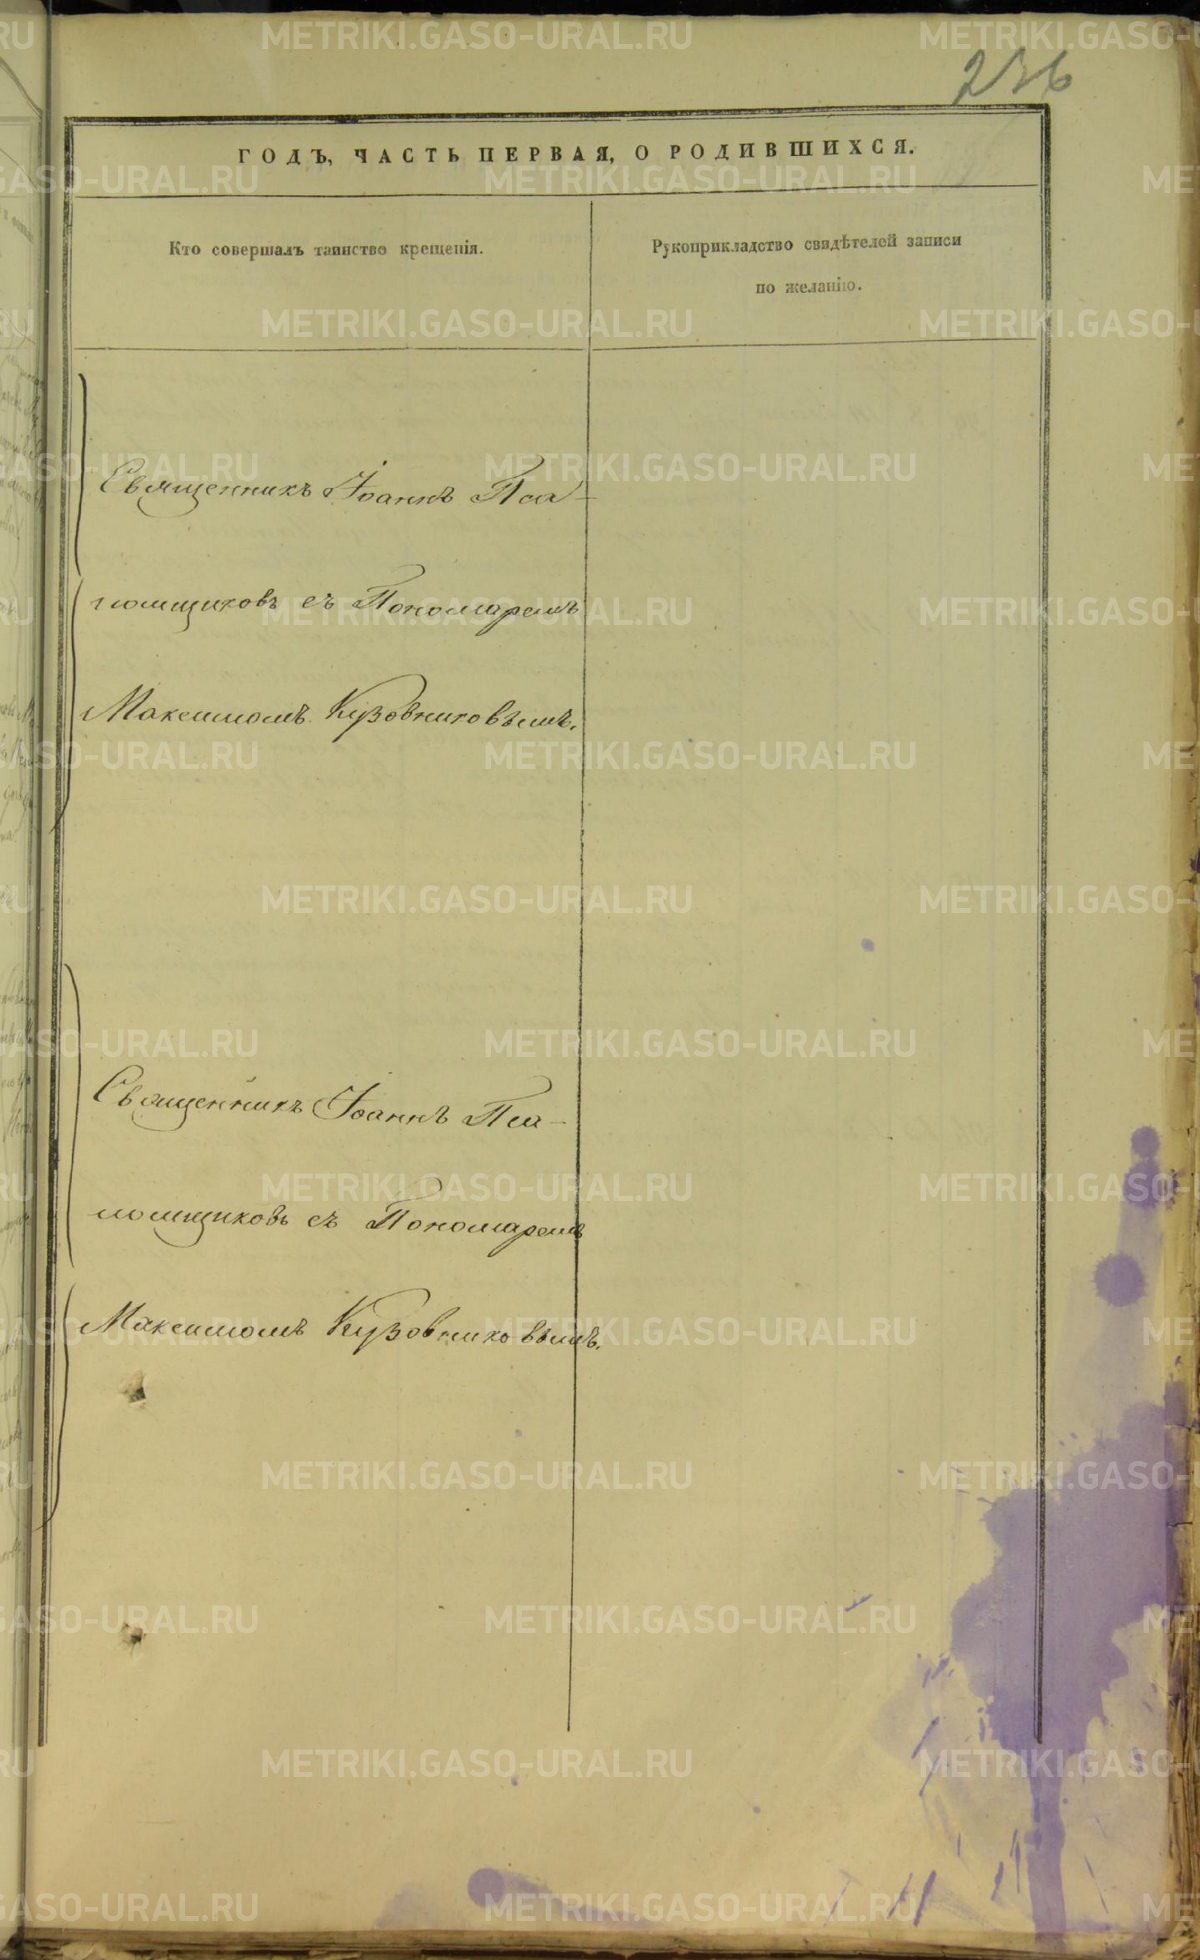 236
ГОДЪ, ЧАСТЬ ПЕРВАЯ, О РОДИВШИХСЯ.
Кто совершалъ таинство крещенія.
Рукоприкладство свидѣтелей записи
по желанію.
Священникъ Іоаннъ Пса-
ломщиковъ съ Пономаремъ
Максимомъ Кузовниковымъ.
Священникъ Іоаннъ Пса-
ломщиковъ съ Пономаремъ
Максимомъ Кузовниковымъ.
METRIKI.GASO-URAL.RU